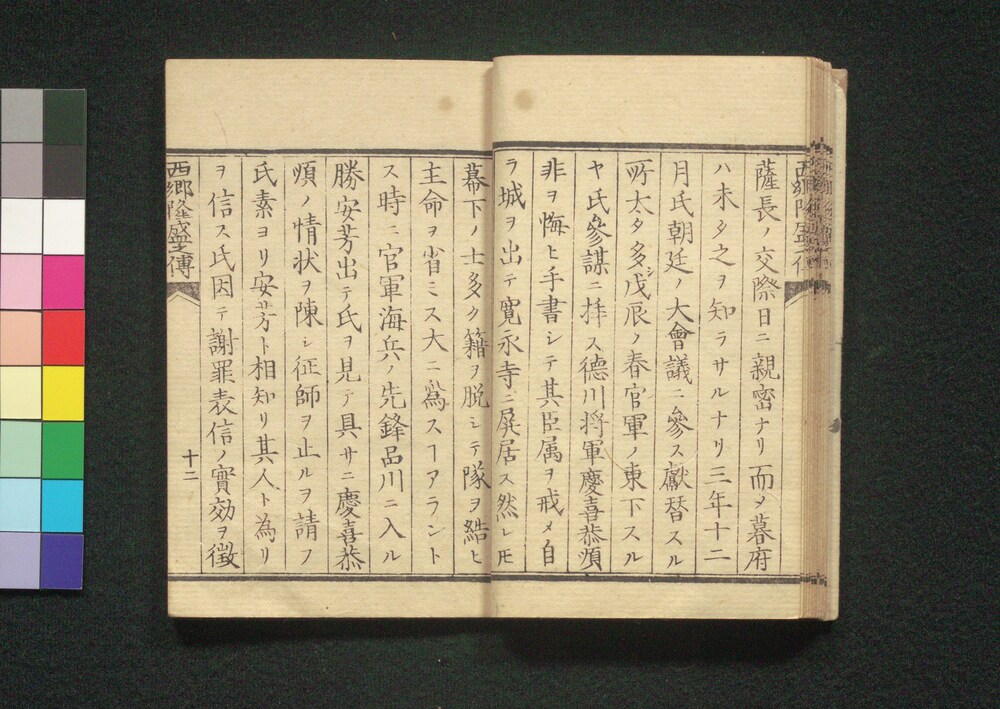 薩長ノ交際日ニ親密ナリ而メ暮府
ハ未タ之ヲ知ラサルナリ三年十二
月氏朝廷ノ大會議ニ參ス獻替スル
所太タ多シ戊辰ノ春官軍ノ東下スル
ヤ氏參謀ニ拝ス德川将軍慶喜恭順
非ヲ悔ヒ手書シテ其臣属ヲ戒メ自
ラ城ヲ出テ寛永寺ニ屏居ス然レ𪜈
幕下ノ士多ク籍ヲ脱シテ隊ヲ結ヒ
主命ヲ省ミス大ニ爲スヿアラント
ス時ニ官軍海兵ノ先鋒品川ニ入ル
勝安芳出テ氏ヲ見テ具サニ慶喜恭
順ノ情状ヲ陳シ征師ヲ止ルヲ請フ
氏素ヨリ安芳ト相知リ其人ト為リ
ヲ信ス氏因テ謝罪表信ノ實効ヲ徴
西郷隆盛之傳
十二